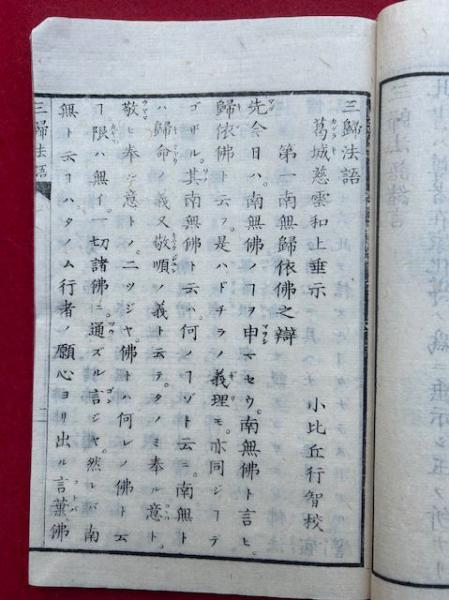 三歸法語
葛城慈雲和上垂示　小比丘行智校
第一南無歸依佛之辯
先今日ハ南無佛ノヿヲ申マセウ。南無佛ト言ヒ。
歸依佛ト云フ。是ハドチラノ義理モ。亦同ジヿデ
ゴザル。其南無佛ト云ハ何ノヿゾト云ニ。南無ト
ハ歸命ノ義又敬順ノ義ト云テ。タノミ奉ル意ト。
敬ヒ奉ル意トノ。二ツジヤ。佛トハ何レノ佛ト云
ヿ限ハ無イ。一切諸佛ニ。通ズル言ジヤ。然レバ南
無ト云ヿハタノム行者ノ願心ヨリ出ル言葉佛
三歸法語